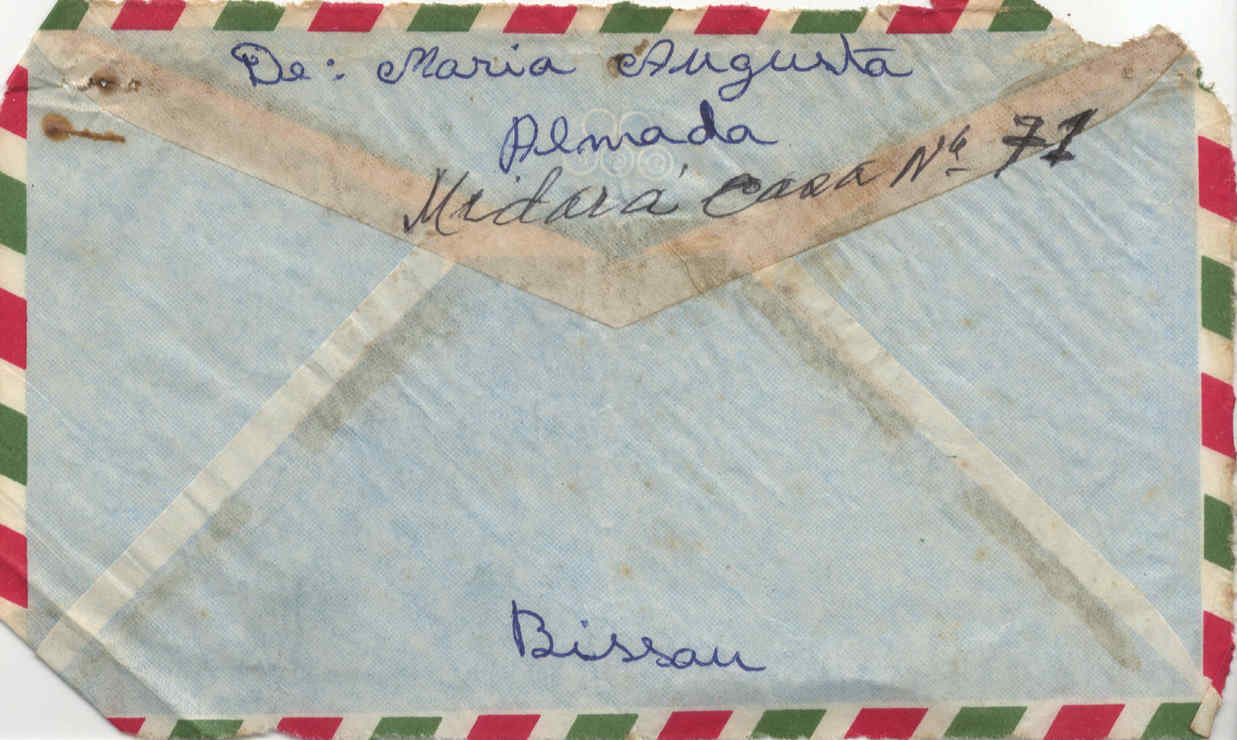 De: Maria Augusta
Almada
Midará casa Nº 71
Bissau